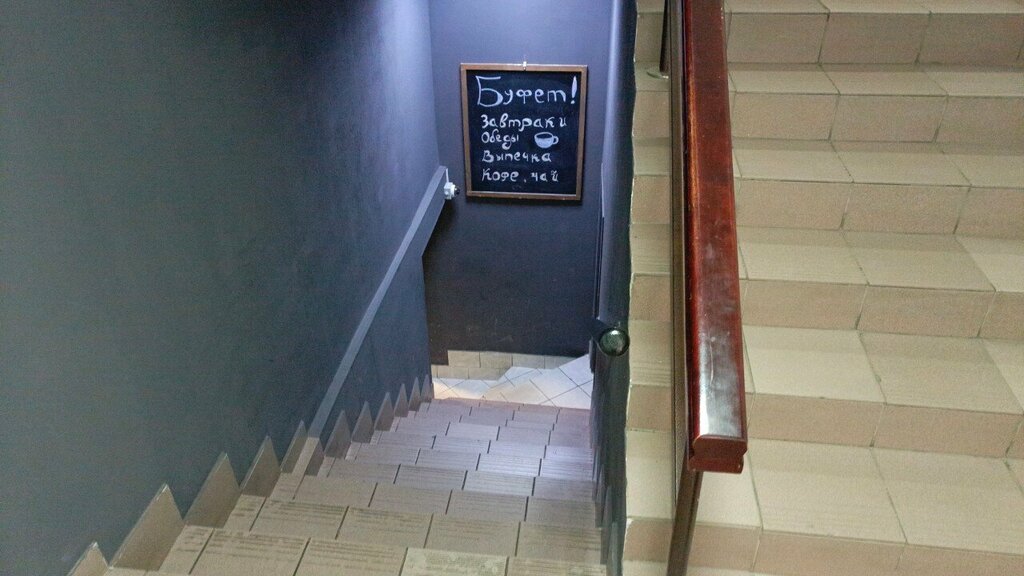 Буфет!
Завтраки
Обеды
Выпечка
Кофе, чай